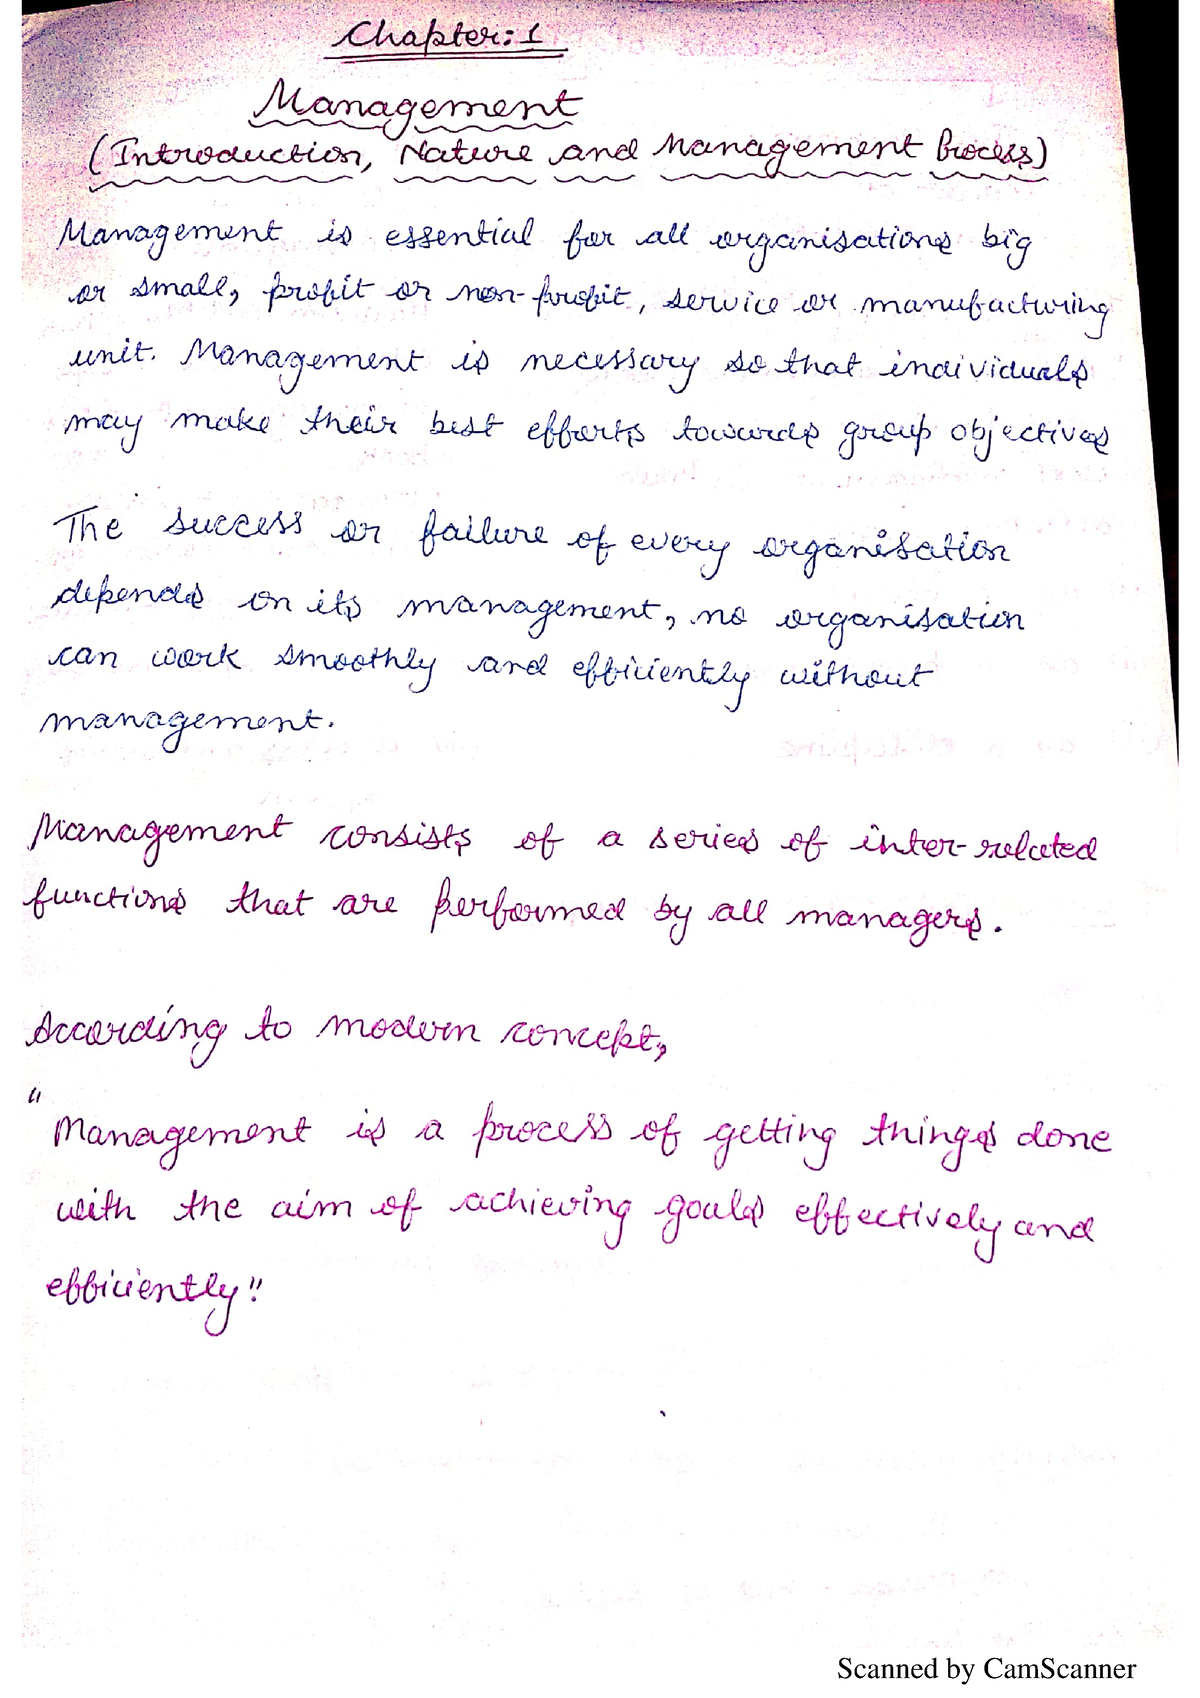 Chapter: 1
Management
(Introduction, Nature and Management Process)
Management is essential for all organisations big
or small, profit or non-profit, service or manufacturing
unit. Management is necessary so that individuals
may make their best efforts towards group objectives
The success or failure of every organisation
depends on its management, no organisation
can work smoothly and efficiently without
management.
Management consists of a series of inter-related
functions that are performed by all managers.
According to modern concept,
"Management is a process of getting things done
with the aim of achieving goals effectively and
efficiently"
Scanned by CamScanner